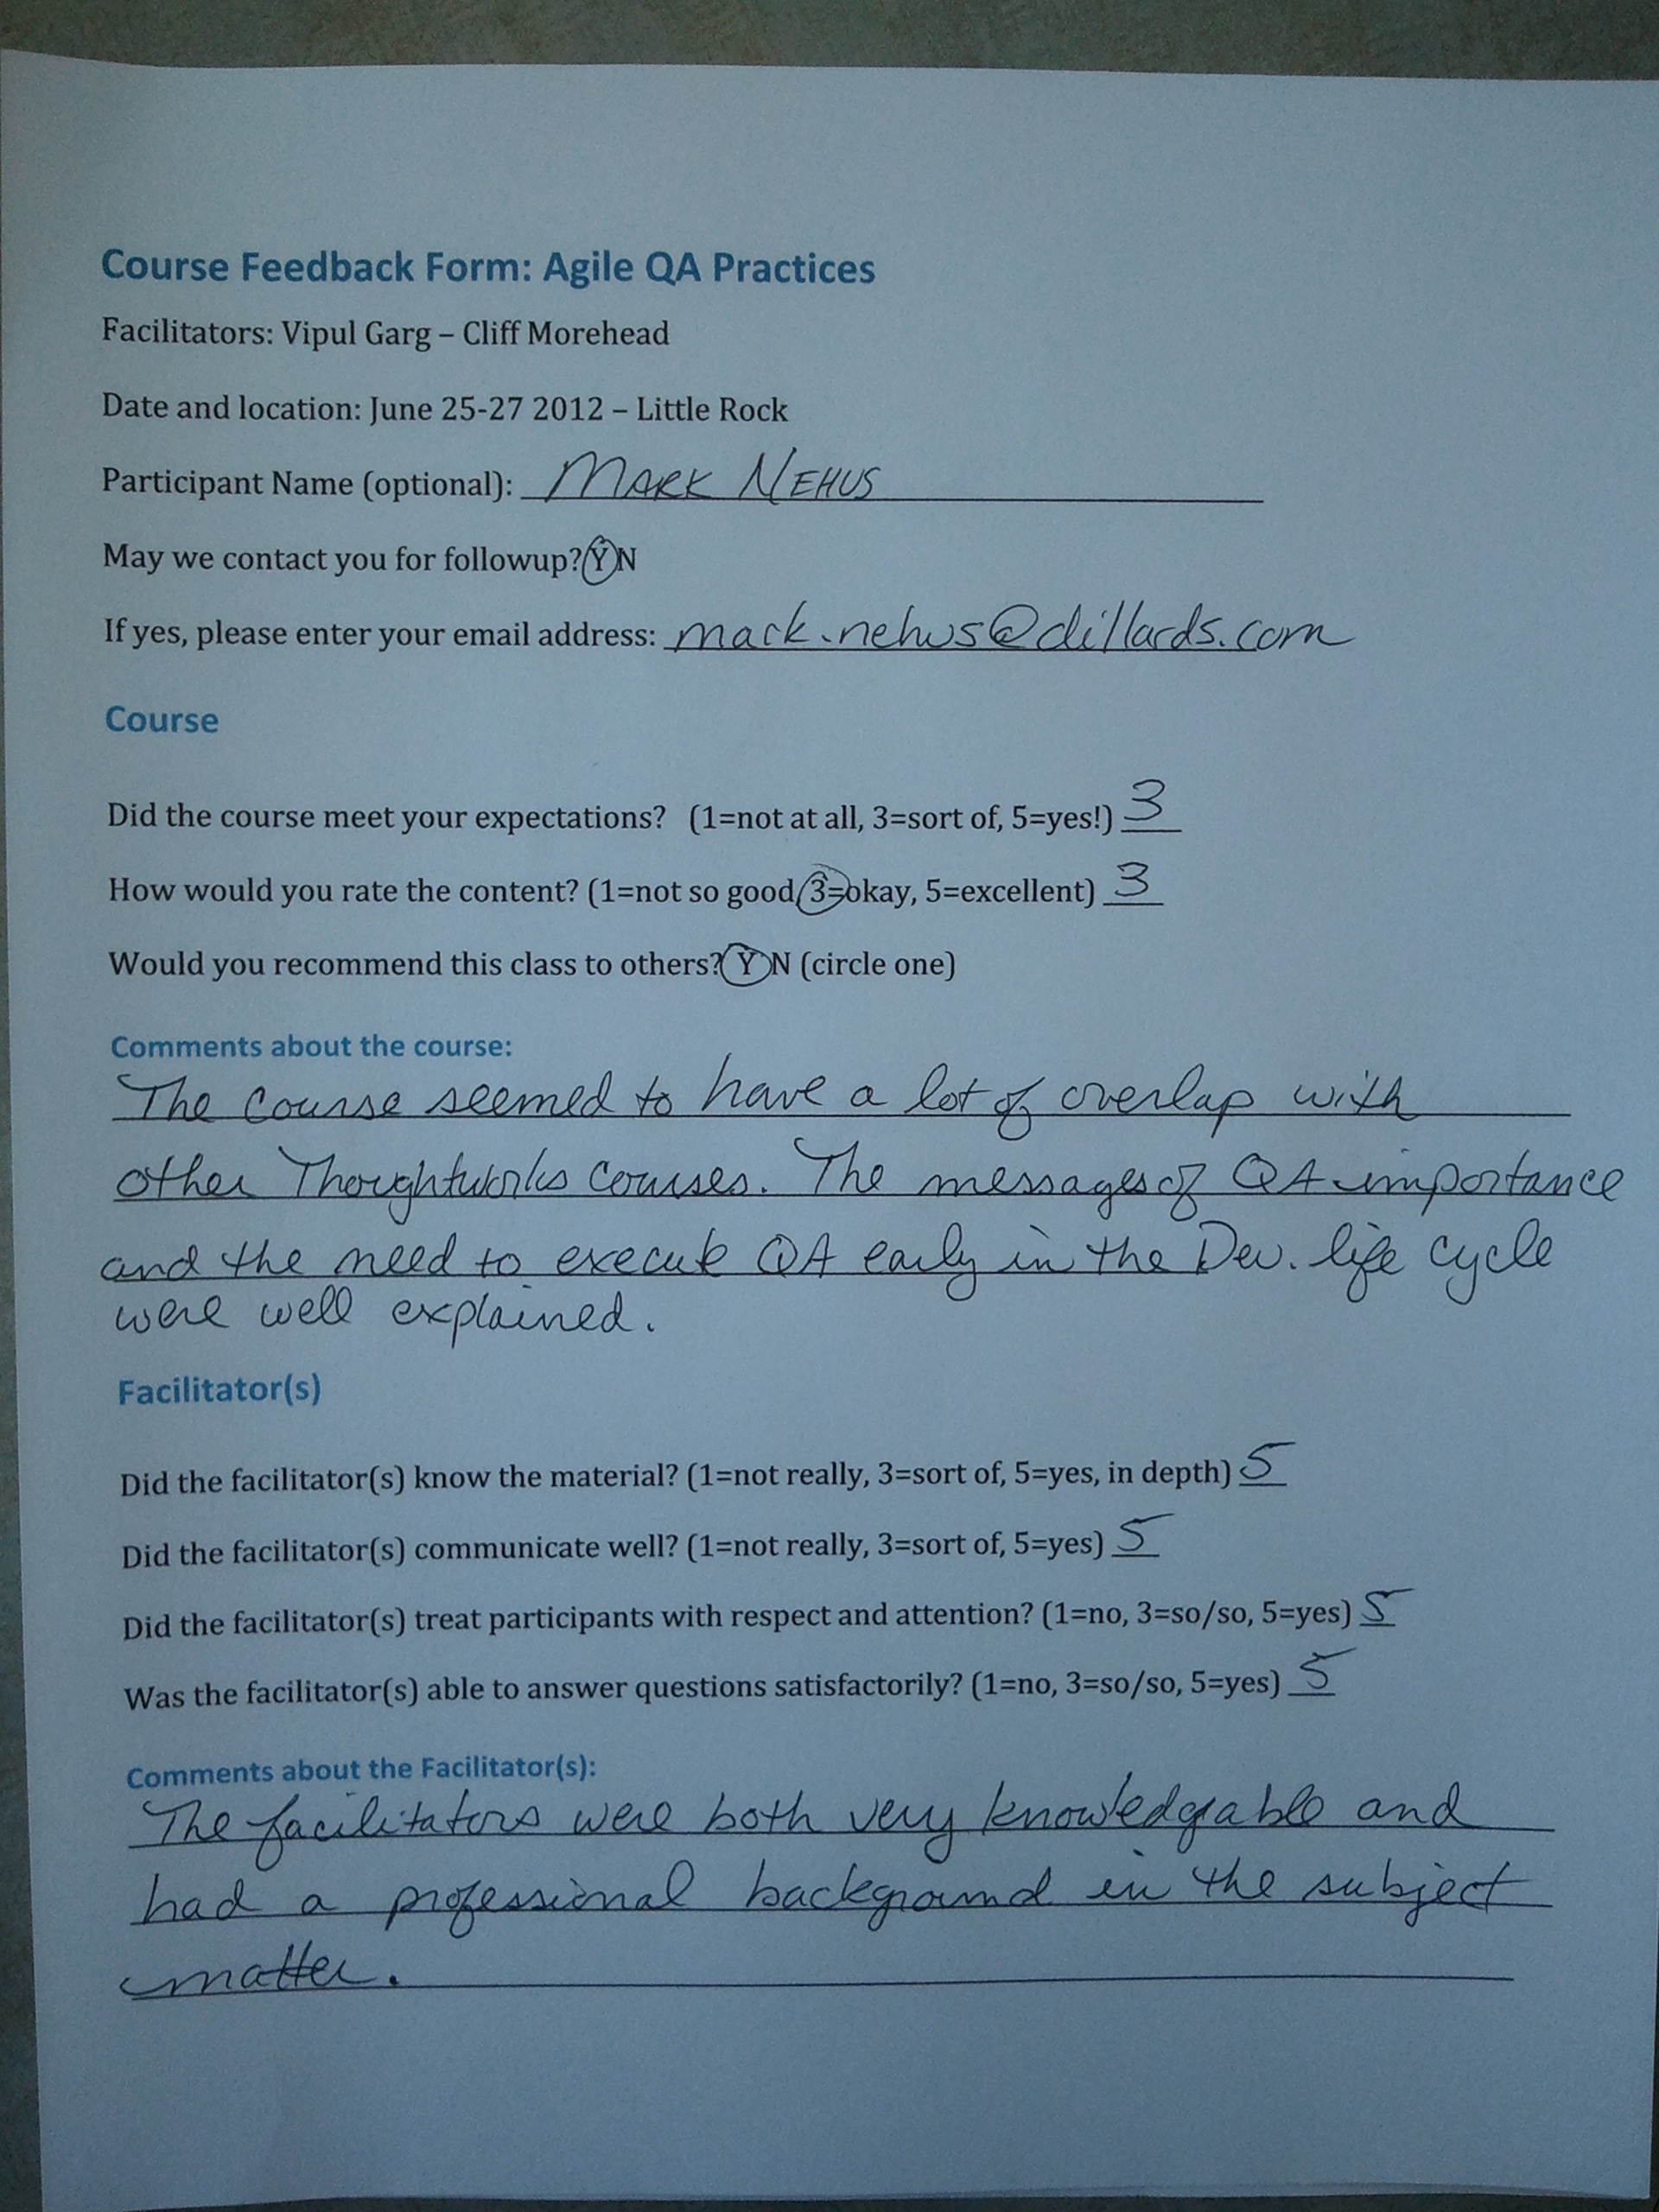 Course Feedback Form: Agile QA Practices
Facilitators: Vipul Garg – Cliff Morehead
Date and location: June 25-27 2012 – Little Rock
Participant Name (optional): MARK NEHUS
May we contact you for followup? Y N
If yes, please enter your email address: mark.nehus@dillards.com
Course
Did the course meet your expectations? (1=not at all, 3=sort of, 5=yes!) 3
How would you rate the content? (1=not so good, 3=okay, 5=excellent) 3
Would you recommend this class to others? Y N (circle one)
Comments about the course:
The course seemed to have a lot of overlap with
other Thoughtworks courses. The messages of QA importance
and the need to execute QA early in the Dev. life cycle
were well explained.
Facilitator(s)
Did the facilitator(s) know the material? (1=not really, 3=sort of, 5=yes, in depth) 5
Did the facilitator(s) communicate well? (1=not really, 3=sort of, 5=yes) 5
Did the facilitator(s) treat participants with respect and attention? (1=no, 3=so/so, 5=yes) 5
Was the facilitator(s) able to answer questions satisfactorily? (1=no, 3=so/so, 5=yes) 5
Comments about the Facilitator(s):
The facilitators were both very knowledgable and
had a professional background in the subject
matter.